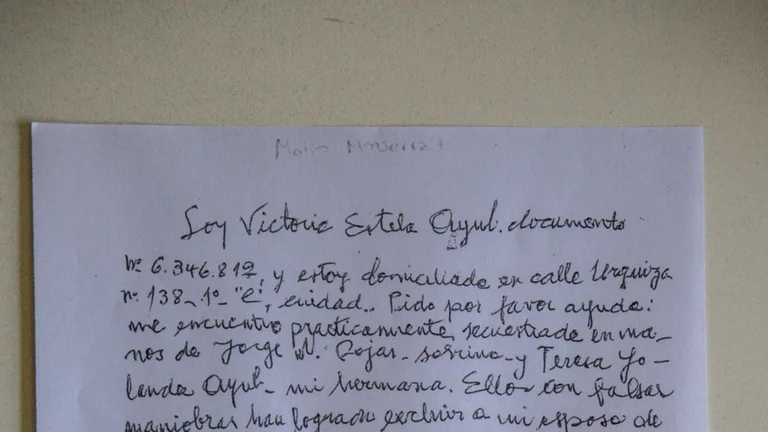 Soy Victoria Estela Ayul. documento
Nº 6.346.812, y estoy domiciliada en calle Urquiza
nº 138-1º-"C", ciudad.. Pido por favor ayuda:
me encuentro prácticamente secuestrada en ma_
nos de Jorge Rojas-sobrino-y Teresa Yo_
landa Ayul-mi hermana. Ellos con falsas
maniobras han logrado excluir a mi esposo de